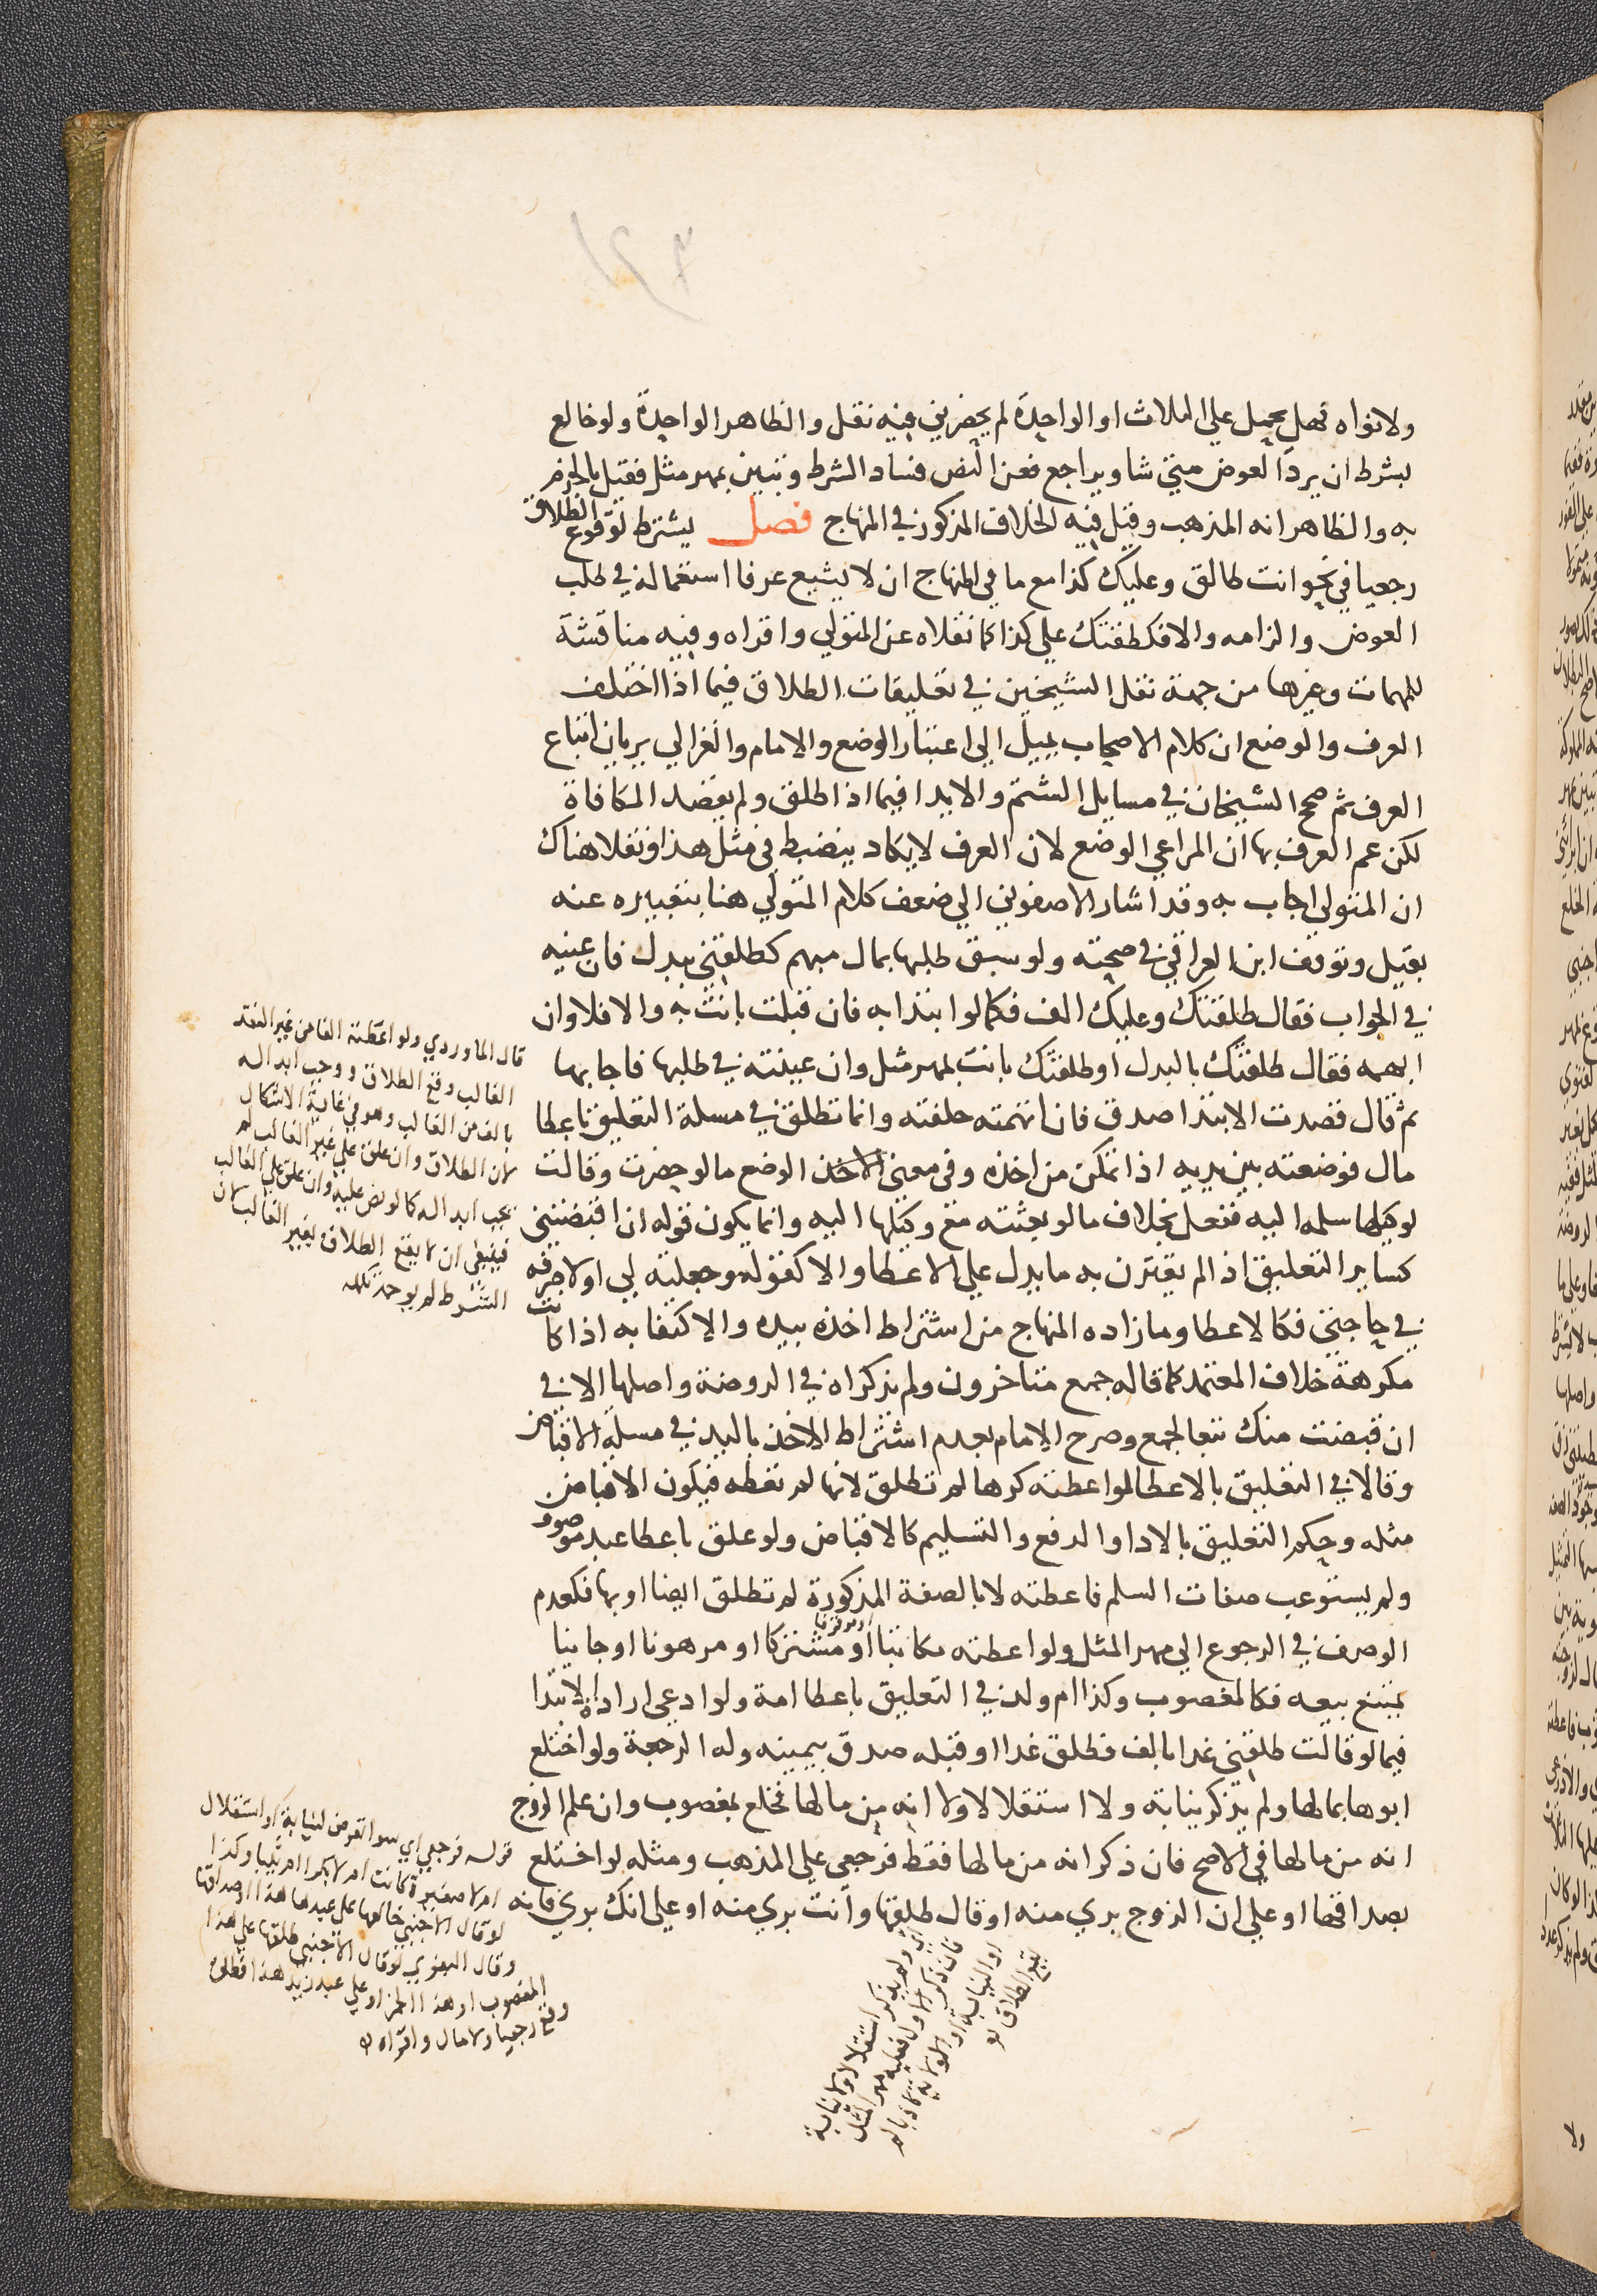 ولا نواه فهل يحمل على الثلاث او الواحدة لم يحضرني فيه نقل والظاهر الواحدة ولو خالع
بشرط ان يرد العوض متى شا ويراجع فعن النص فساد الشرط وتبين بمهر مثل فقيل بالجزم
به والظاهر انه المذهب وقيل فيه الخلاف المذكور في المنهاج فصل يشترط لوقوع الطلاق
رجعيا في نحو انت طالق وعليك كذا مع ما في المنهاج ان لا يشيع عرفا استعماله في طلب
العوض والزامه والا فكطلقتك على كذا كما نقلاه عن المتولي واقراه وفيه مناقشة
للمهمات وغيرها من جهة نقل الشيخين في تعليقات الطلاق فيما اذا اختلف
العرف والوضع ان كلام الاصحاب يميل الى اعتبار الوضع والامام والغزالي يريان اتباع
العرف ثم صحح الشيخان في مسايل الشتم والايذا فيما اذا اطلق ولم يقصد المكافاة
لكن عم العرف بها ان المراعي الوضع لان العرف لا يكاد ينضبط في مثل هذا ونقلا هناك
ان المتولي اجاب به وقد اشار الاصفوني الى ضعف كلام المتولي هنا بتعبيره عنه
بقيل وتوقف ابن العراقي في صحته ولو سبق طلبها بمال مبهم كطلقني ببدل فان عينه
في الجواب فقال طلقتك وعليك الف فكما لو ابتدا به فان قبلت بانت به والا فلا وان
ابهمه فقال طلقتك بالبدل او طلقتك بانت بمهر مثل وان عينته في طلبها فاجابها
ثم قال قصدت الابتدا صدق فان اتهمته حلفته وانما تطلق في مسلة التعليق باعطا
مال فوضعته بين يديه اذا تمكن من اخذه وفي معنى الاخذ الوضع ما لو حضرت وقالت
لوكيلها سلمه اليه ففعل بخلاف ما لو بعثته مع وكيلها اليه وانما يكون قوله ان اقبضتني
كساير التعليق اذا لم يقترن به ما يدل على الاعطا والا كقوله وجعلته لي او لاصرفه
في حاجتي فكالاعطا وما زاده المنهاج من اشتراط اخذه بيده والاكتفا به اذا كانت
مكرهة خلاف المعتمد كما قاله جمع متاخرون ولم يذكراه في الروضة واصلها الا في
ان قبضت منك تبعا لجمع وصرح الامام بعدم اشتراط الاخذ باليد في مسلة الاقباض
وقالا في التعليق بالاعطا لو اعطته كرها لم تطلق لانها لم تعطه فيكون الاقباض
مثله وحكم التعليق بالادا والدفع والتسليم كالاقباض ولو علق باعطا عبد موصوف
ولم يستوعب صفات السلم فاعطته لا بالصفة المذكورة لم تطلق ايضا او بها فكعدم
الوصف في الرجوع الى مهر المثل ولو اعطته مكاتبا او مشتركا او مرهونا او جانيا
يمتنع بيعه فكالمغصوب وكذا ام ولد في التعليق باعطا امة ولو ادعى ارادة الابتدا
فيما لو قالت طلقني غدا بالف فطلق غدا او قبله صدق بيمينه وله الرجعة ولو اختلع
ابوها بمالها ولم يذكر نيابة ولا استقلالا ولا انه من مالها فخلع بمغصوب وان علم الزوج
انه من مالها في الاصح فان ذكر انه من مالها فقط فرجعي على المذهب ومثله لو اختلع
بصداقها او على ان الزوج بري منه او قال طلقها وانت بري منه او على انك بري فانه
قال الماوردي ولو اعطته الفا من غير النقد
الغالب وقع الطلاق ووجب ابداله
بالف من الغالب وهو في غاية الاشكال
لان الطلاق وان علق على غير الغالب لم
يجب ابداله كما لو نص عليه وان علق على الغالب
فينبغي ان لا يقع الطلاق بغير الغالب لان
الشرط لم يوجد
قوله فرجعي اي سوا تعرض لنيابة او استقلال
ام لا صغيرة كانت ام لا بكرا ام ثيبا وكذا
لو قال الاجنبي خالعها على عبدها هذا او صداقها
وقال البغوي لو قال الاجنبي طلقها على هذا
المغصوب او هذا الخمر او على عبد زيد هذا فطلق
وقع رجعيا ولا مال واقراه
ولم يذكر استقلالا ولا نيابة
فان ذكر الاول فعليه مهر المثل
او النيابة او الولاية
لم يقع الطلاق